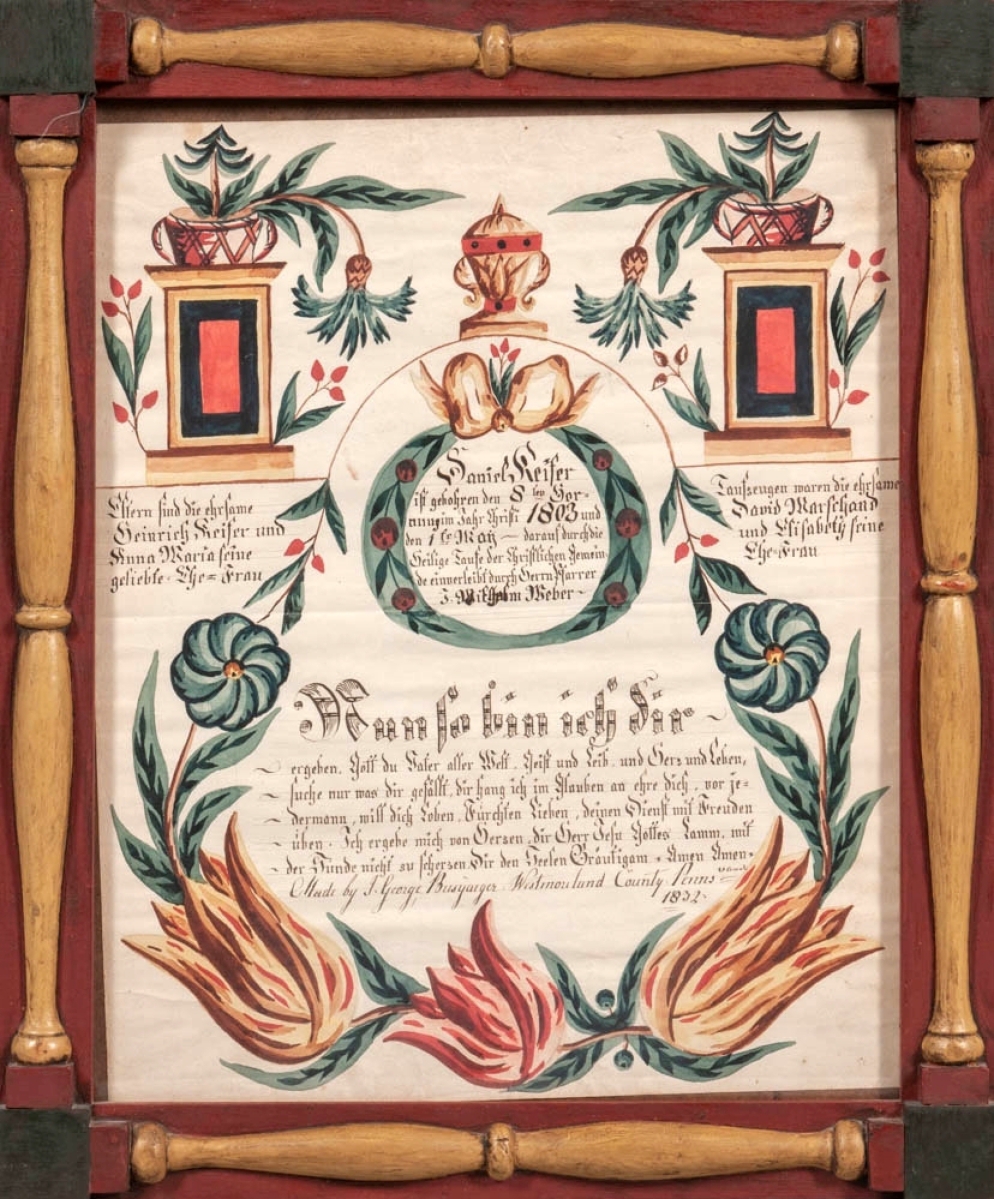 Eltern sind die ehrsame
Heinrich Keiser und
Anna Maria seine
geliebte Ehe=Frau
Daniel Keiser
ist gebohren den 8ten Hor-
nung im Jahr Christi 1803 und
den 1te May — darauf durch die
Heilige Taufe der Christlichen Gemein-
de einverleibt durch Herrn Pfarrer
J. Wilhelm Weber -
Taufzeugen waren die ehrsame
David Marschand
und Elisabeth seine
Ehe=Frau
Nun so bin ich dir ~
~ ergeben, Gott du Vater aller Welt. Geist und Leib, und Herz und Leben,
~ suche nur was dir gefällt, dir hang ich im Glauben an ehre dich, vor je=
~ dermann, will dich Loben, Fürchten Lieben, deinen Dienst mit Freuden
~ üben. Ich ergebe mich von Herzen, dir Herr Jesu Gottes Lamm, mit
~ der Sünde nicht zu scherzen, Dir den Seelen Bräutigam. Amen Amen.
Made by J. George Busyaeger Westmorland County Penns
1832.